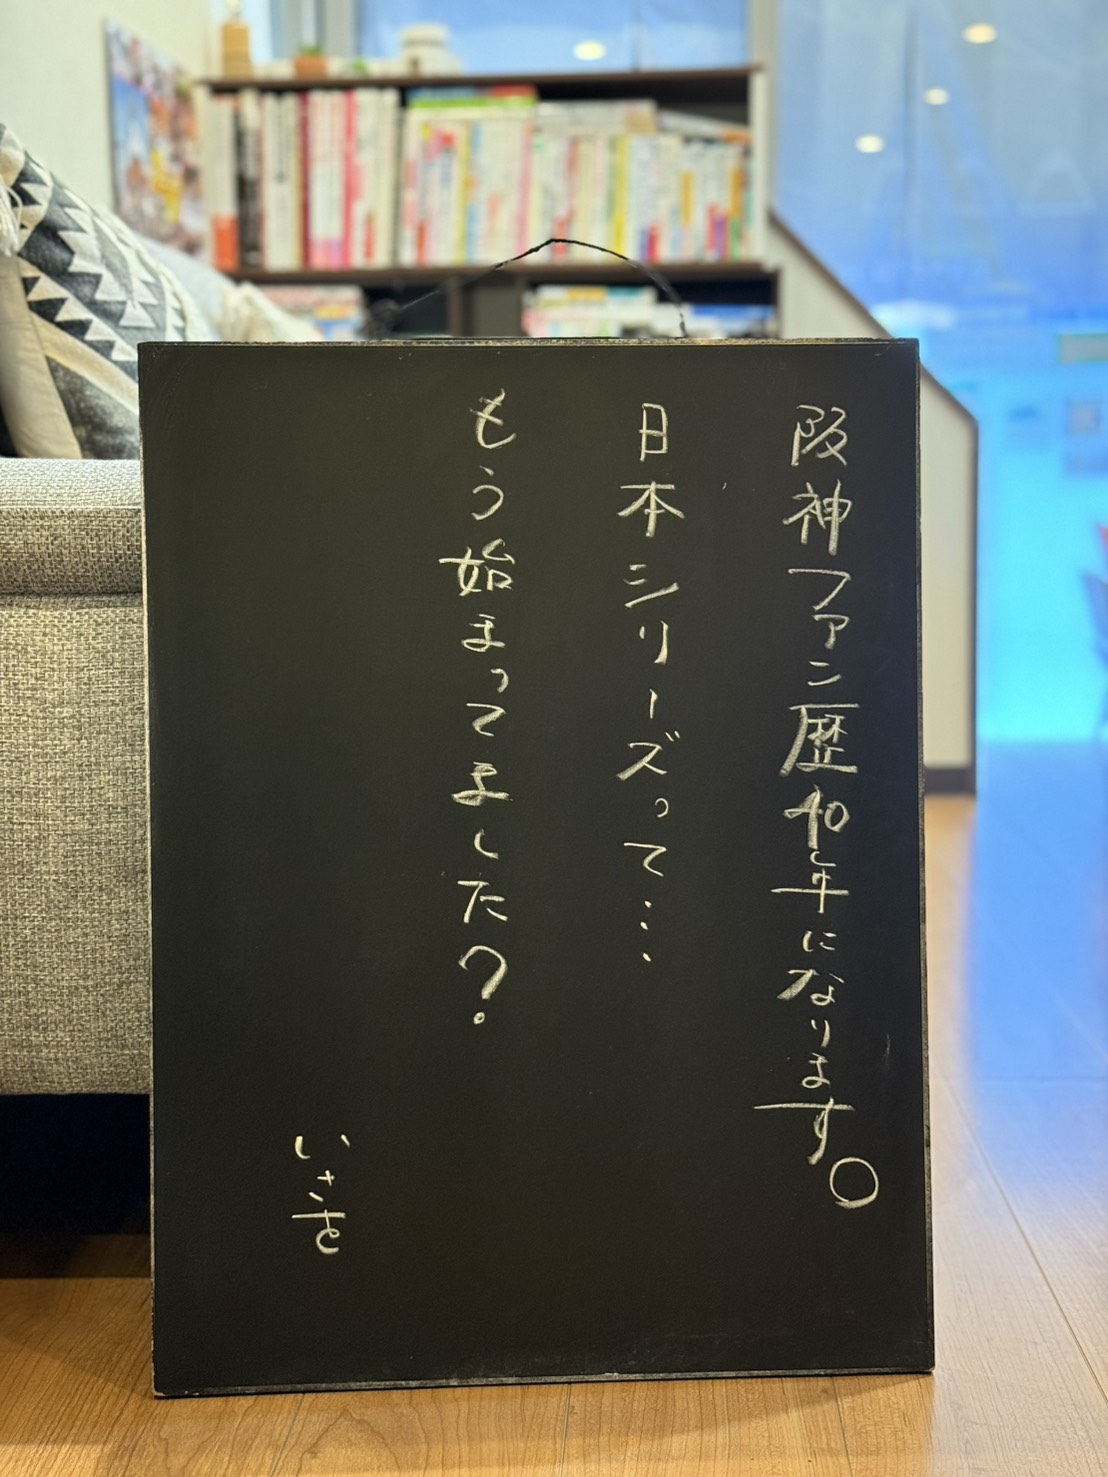 阪神ファン歴40年になります。
日本シリーズって…
もう始まってました?
いさを